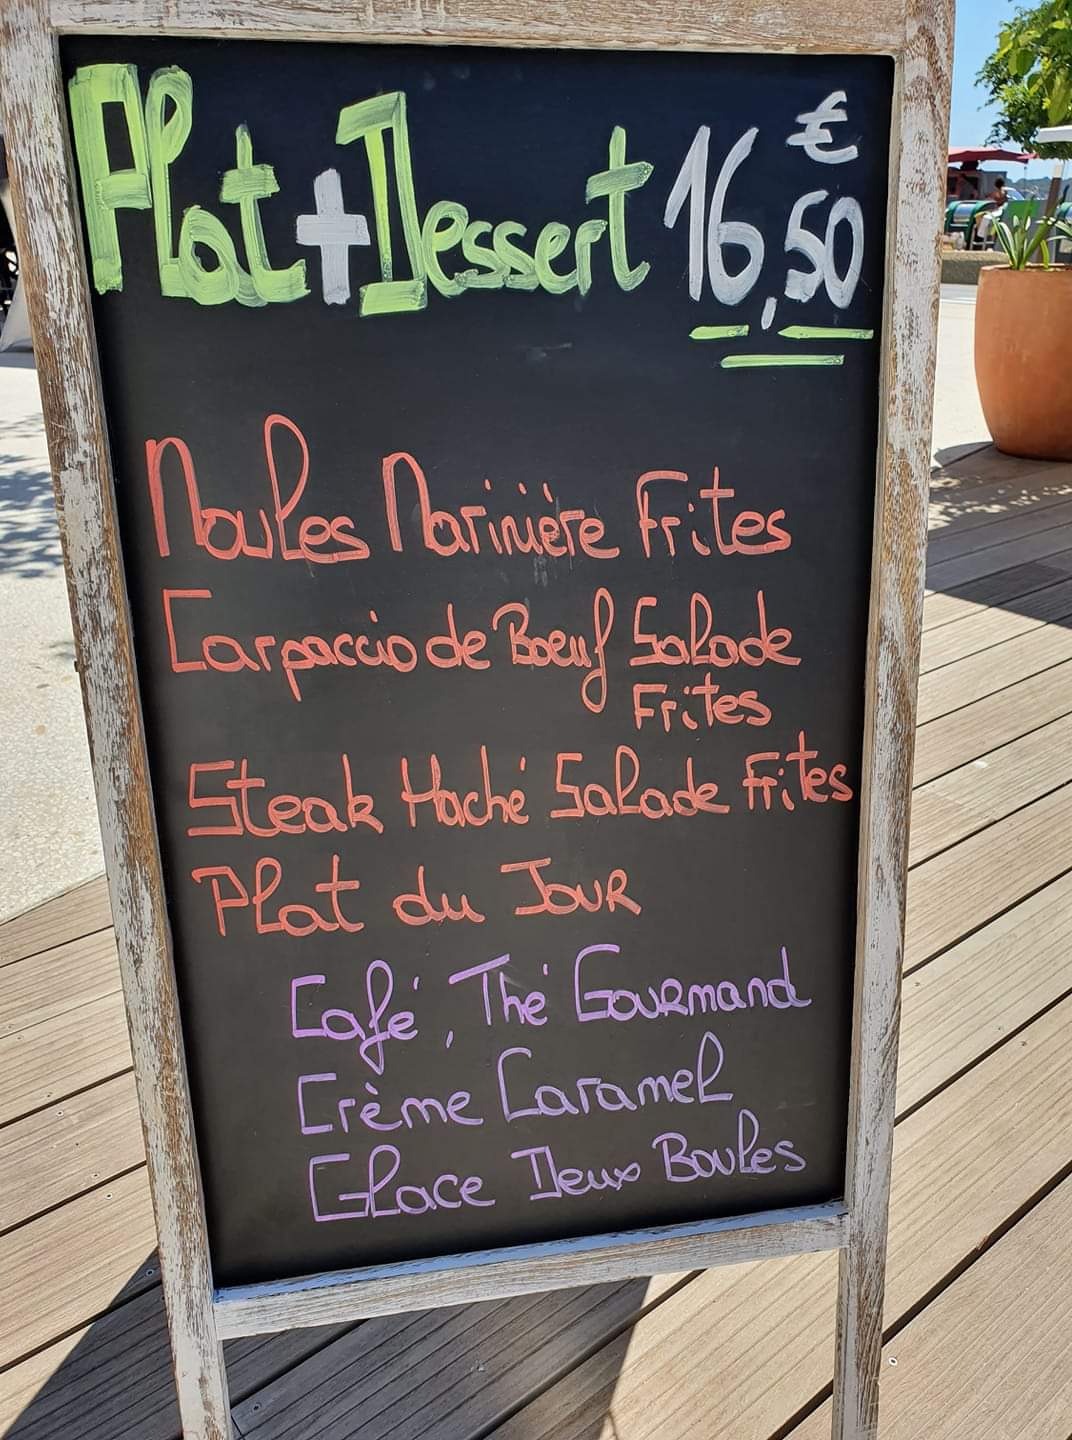 Plat + Dessert 16,50 €
Moules Marinière Frites
Carpaccio de Boeuf Salade
Frites
Steak Haché Salade Frites
Plat du Jour
Café, Thé Gourmand
Crème Caramel
Glace Deux Boules